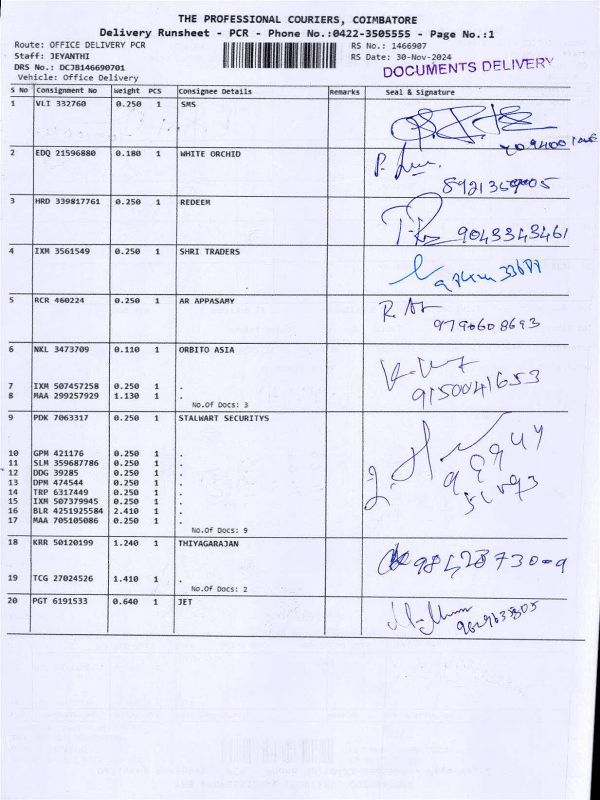 THE PROFESSIONAL COURIERS, COIMBATORE
Delivery Runsheet - PCR - Phone No.:0422-3505555 - Page No.:1
Route: OFFICE DELIVERY PCR RS No.: 1466907
Staff: JEYANTHI RS Date: 30-Nov-2024
DRS No.: DCJB146690701 DOCUMENTS DELIVERY
Vehicle: Office Delivery
S No Consignment No Weight PCS Consignee Details Remarks Seal & Signature
1 VLI 332760 0.250 1 SMS
2 EDQ 21596880 0.180 1 WHITE ORCHID
3 HRD 339817761 0.250 1 REDEEM
9043343461
4 IXM 3561549 0.250 1 SHRI TRADERS
5 RCR 460224 0.250 1 AR APPASAMY
9790608693
6 NKL 3473709 0.110 1 ORBITO ASIA
7 IXM 507457258 0.250 1 .
9150041653
8 MAA 299257929 1.130 1 .
No.Of Docs: 3
9 PDK 7063317 0.250 1 STALWART SECURITYS
10 GPM 421176 0.250 1 .
11 SLM 359687786 0.250 1 .
12 DDG 39285 0.250 1 .
13 DPM 474544 0.250 1 .
14 TRP 6317449 0.250 1 .
15 IXM 507379945 0.250 1 .
16 BLR 4251925584 2.410 1 .
17 MAA 705105086 0.250 1 .
No.Of Docs: 9
18 KRR 50120199 1.240 1 THIYAGARAJAN
19 TCG 27024526 1.410 1 .
No.Of Docs: 2
20 PGT 6191533 0.640 1 JET